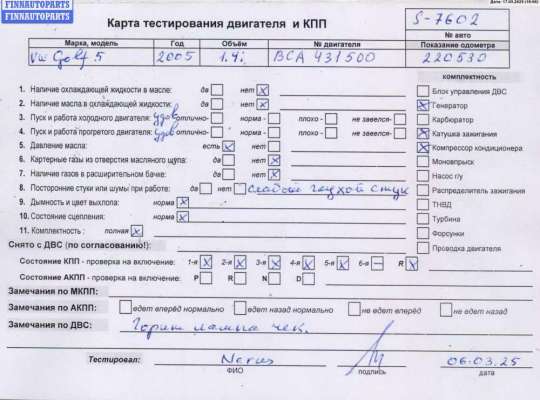 FINNAUTOPARTS
FINNAUTOPARTS
Карта тестирования двигателя и КПП
S-7602
№ авто
Марка, модель Год Объём № двигателя Показание одометра
VW Golf 5 2005 1.4i BCA 431500 220530
комплектность
1. Наличие охлаждающей жидкости в масле: да нет X
2. Наличие масла в охлаждающей жидкости: да нет X
3. Пуск и работа холодного двигателя: удов отлично- норма - плохо - не завелся-
4. Пуск и работа прогретого двигателя: удов отлично- норма - плохо - не завелся-
5. Давление масла: есть X нет
6. Картерные газы из отверстия масляного щупа: да нет X
7. Наличие газов в расширительном бачке: да нет X
8. Посторонние стуки или шумы при работе: да нет слабый глухой стук
9. Дымность и цвет выхлопа: норма X
10. Состояние сцепления: норма X
11. Комплектность : полная X
Блок управления ДВС
X Генератор
Карбюратор
X Катушка зажигания
X Компрессор кондиционера
Моновпрыск
Насос г/у
Распределитель зажигания
ТНВД
Турбина
Форсунки
Проводка двигателя
Снято с ДВС (по согласованию!):
Состояние КПП - проверка на включение: 1-я X 2-я X 3-я X 4-я X 5-я X 6-я — R X
Состояние АКПП - проверка на включение: P R N D
Замечания по МКПП:
Замечания по АКПП: едет вперёд нормально едет назад нормально не едет вперёд не едет назад
Замечания по ДВС: Горит лампа чек.
Тестировал: 06.03.25
ФИО подпись дата